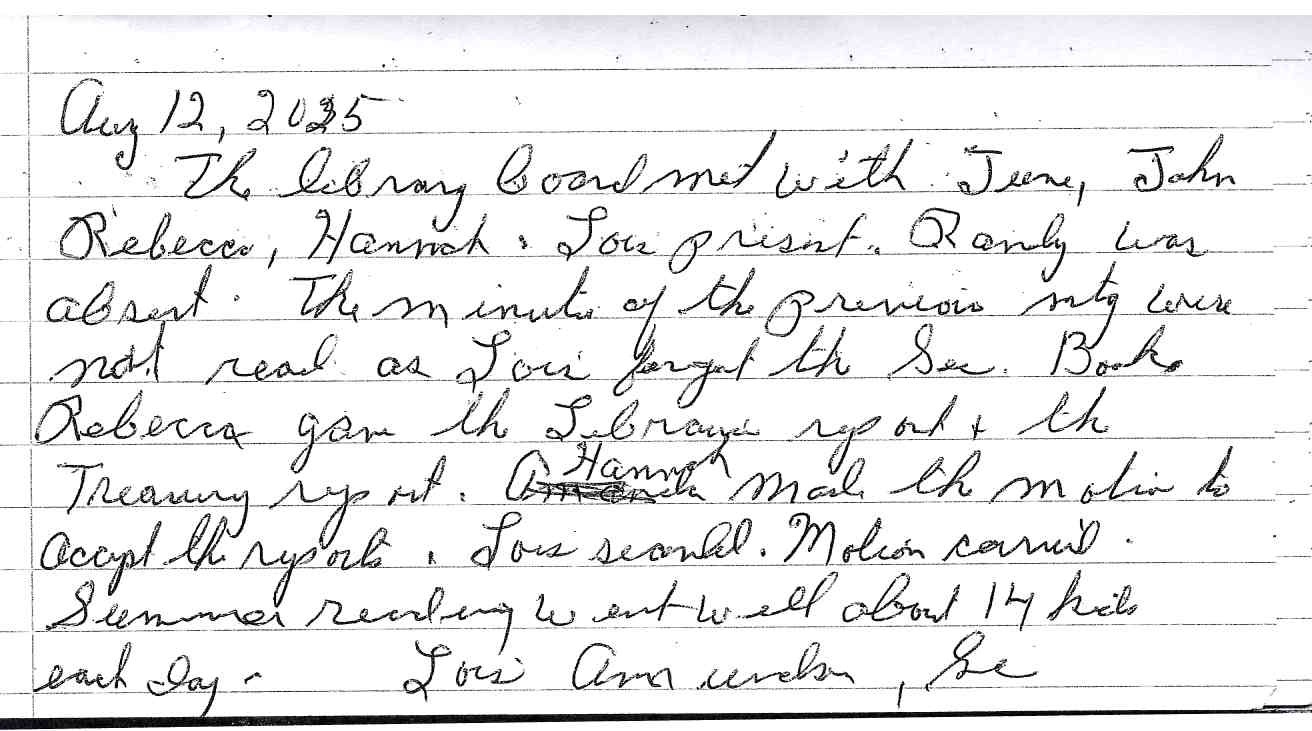 Aug 12, 2025
The library board met with June, John
Rebecca, Hannah & Lois present. Randy was
absent. The minutes of the previous mtg were
not read as Lois forgot the Sec. Book.
Rebecca gave the Librarian report & the
Treasury report. Hannah made the motion to
accept the reports. Lois seconded. Motion carried.
Summer reading went well about 14 kids
each day - Lois Amundson, Sec